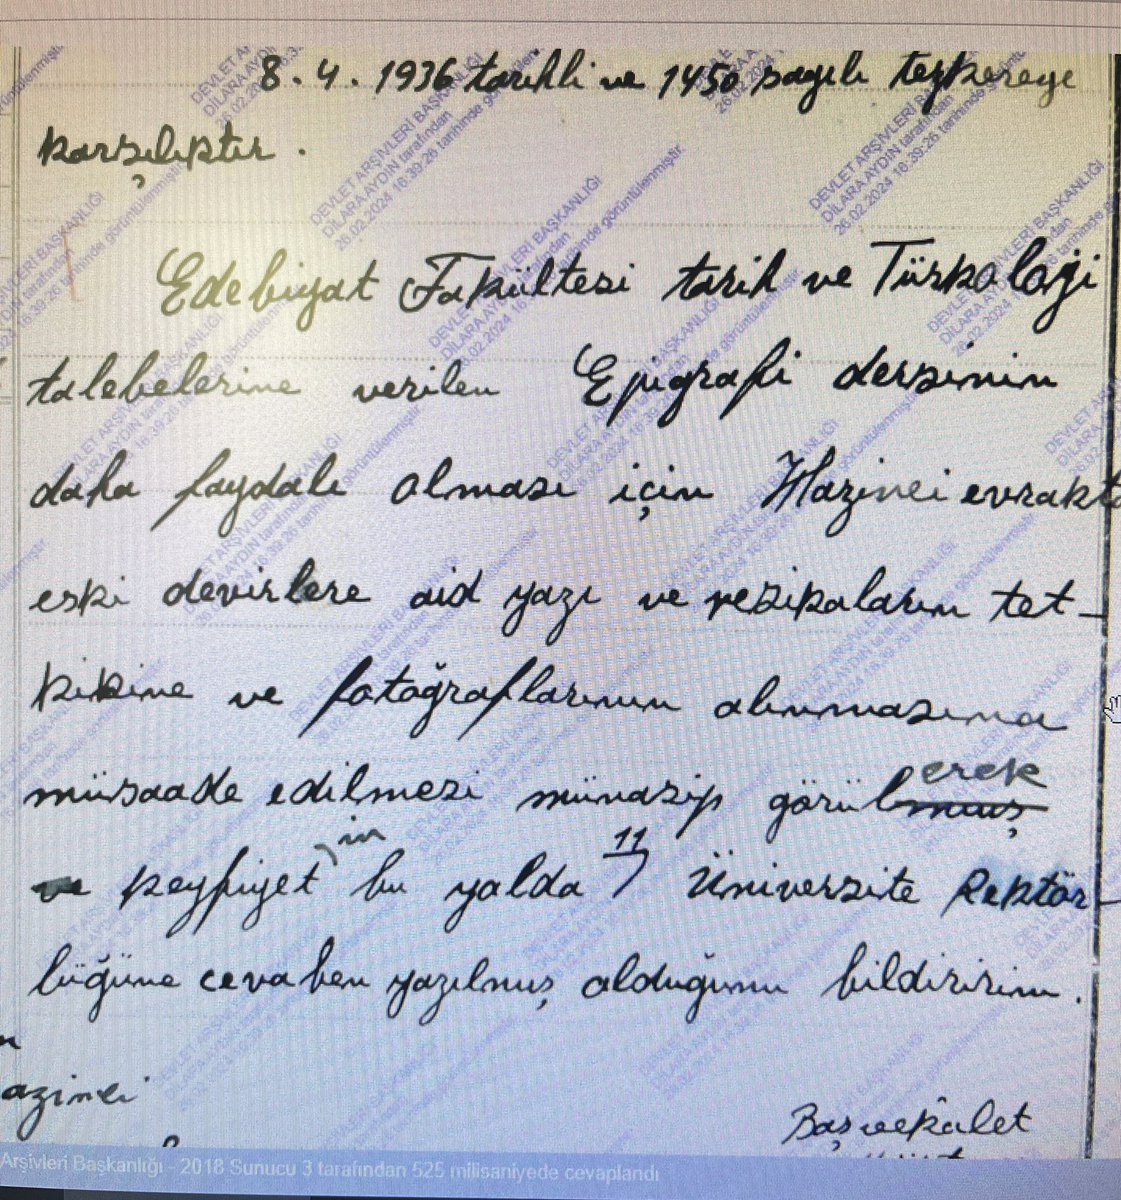 8.4.1936 tarihli ve 1450 sayılı tezkereye
karşılıktır.
Edebiyat Fakültesi tarih ve Türkoloji
talebelerine verilen Epigrafi dersinin
daha faydalı olması için Hazinei evrakta
eski devirlere aid yazı ve vesikaların tet-
kikine ve fotoğraflarının alınmasına
müsaade edilmesi münasip görülmüş erek
ve keyfiyet in bu yolda 11 Üniversite Rektör-
lüğüne cevaben yazılmış olduğunu bildiririm.
azinei
Başvekâlet
Arşivleri Başkanlığı - 2018 Sunucu 3 tarafından 525 milisaniyede cevaplandı
DEVLET ARŞİVLERİ BAŞKANLIĞI
DİLARA AYDIN tarafından
26.02.2024 16:39:26 tarihinde görüntülenmiştir.